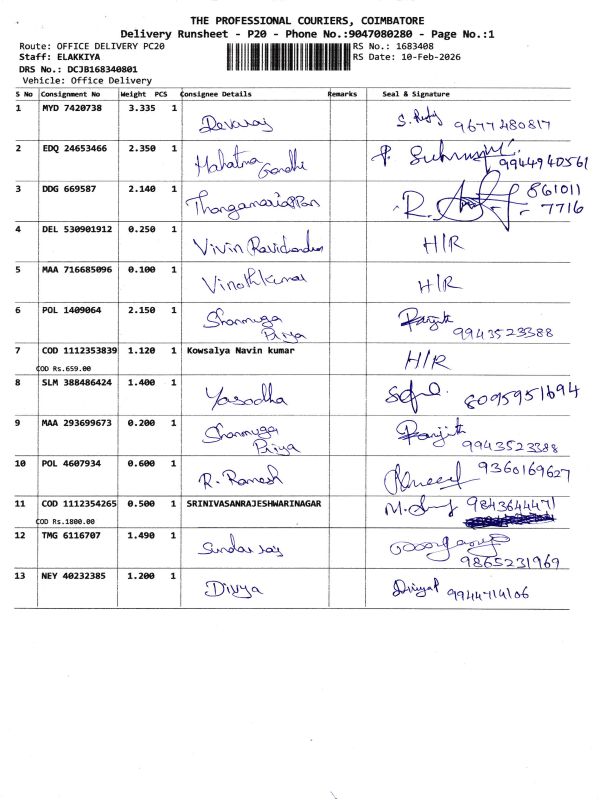 THE PROFESSIONAL COURIERS, COIMBATORE
Delivery Runsheet - P20 - Phone No.:9047080280 - Page No.:1
Route: OFFICE DELIVERY PC20 RS No.: 1683408
Staff: ELAKKIYA RS Date: 10-Feb-2026
DRS No.: DCJB168340801
Vehicle: Office Delivery
S No Consignment No Weight PCS Consignee Details Remarks Seal & Signature
1 MYD 7420738 3.335 1 Devaraj 9677480817
2 EDQ 24653466 2.350 1 Mahatma Gandhi 9944940561
3 DDG 669587 2.140 1 Thangamariappan R. 861011
7716
4 DEL 530901912 0.250 1 Vivin Ravichandran H/R
5 MAA 716685096 0.100 1 Vinothkumar H/R
6 POL 1409064 2.150 1 Shanmuga Priya Ranjith 9943523388
7 COD 1112353839 1.120 1 Kowsalya Navin kumar H/R
COD Rs.659.00
8 SLM 388486424 1.400 1 Yasodha 8095951694
9 MAA 293699673 0.200 1 Shanmuga Priya Ranjith 9943523388
10 POL 4607934 0.600 1 R. Ramesh 9360169627
11 COD 1112354265 0.500 1 SRINIVASANRAJESHWARINAGAR 9843644471
COD Rs.1800.00
12 TMG 6116707 1.490 1 Sundar raj 9865231969
13 NEY 40232385 1.200 1 Divya 9944714106